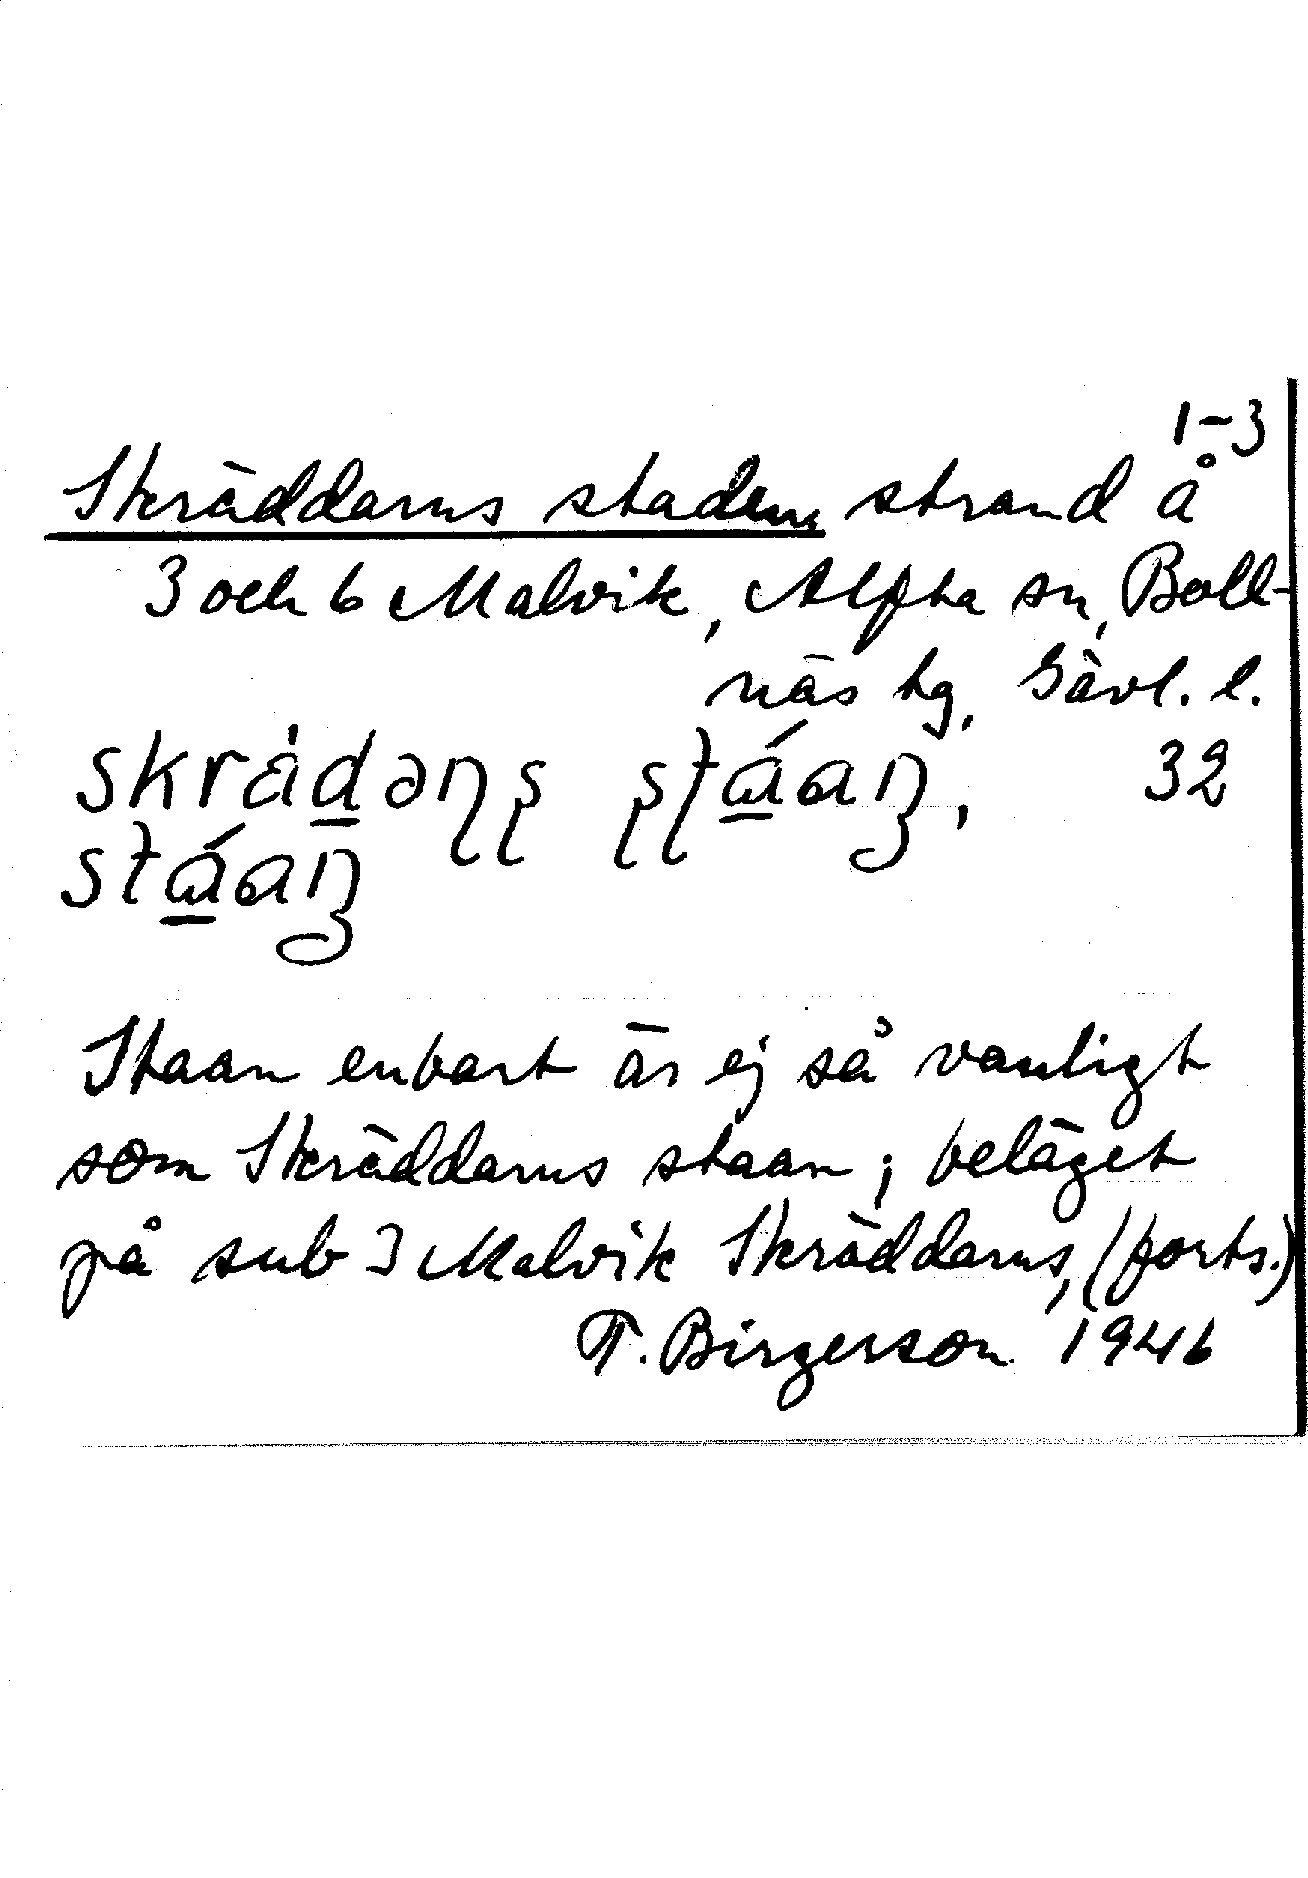 1-3
Skräddarns staden, strand å
3 och 6 Malvik, Alfta sn, Boll-
näs hg, Gävl. l.
32
Staan enbart är ej så vanligt
som Skräddarns staan; beläget
på sub 3 Malvik Skräddarns, (forts.)
T. Birgerson 1946